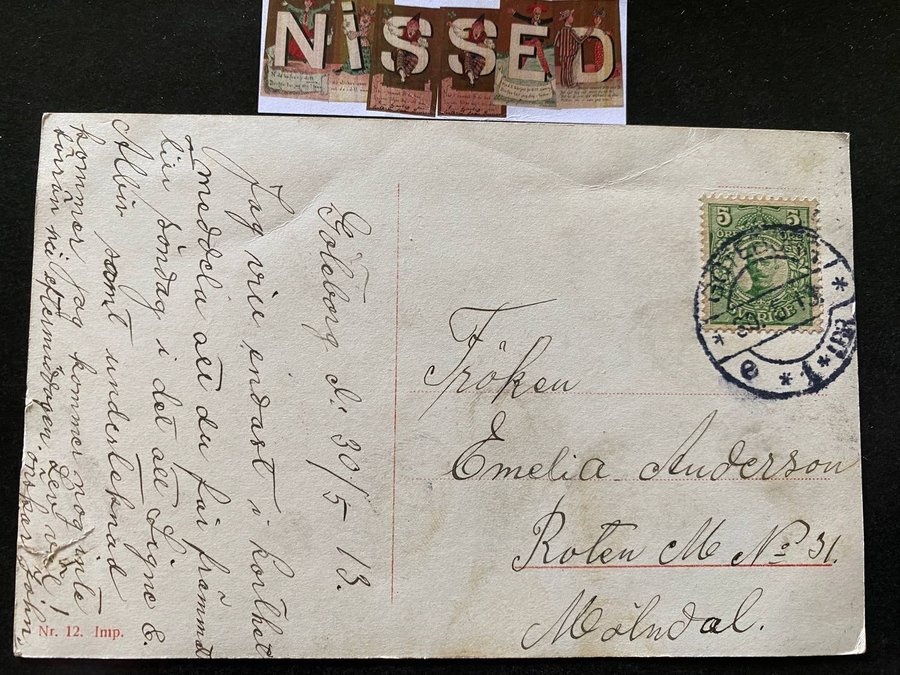 NISSED
Göteborg d. 30/5 13.
Jag vill endast i korthet
meddela att du får främmat
till söndag i det att Signe &
Albin samt undertecknad
kommer, jag kommer nog inte
förrän på eftermiddagen. Lev väl!
önskar John.
5 5
ÖRE
SVERIGE
GÖTEBORG 1
Fröken
Emelia Anderson
Roten M No 31.
Mölndal.
Nr. 12. Imp.